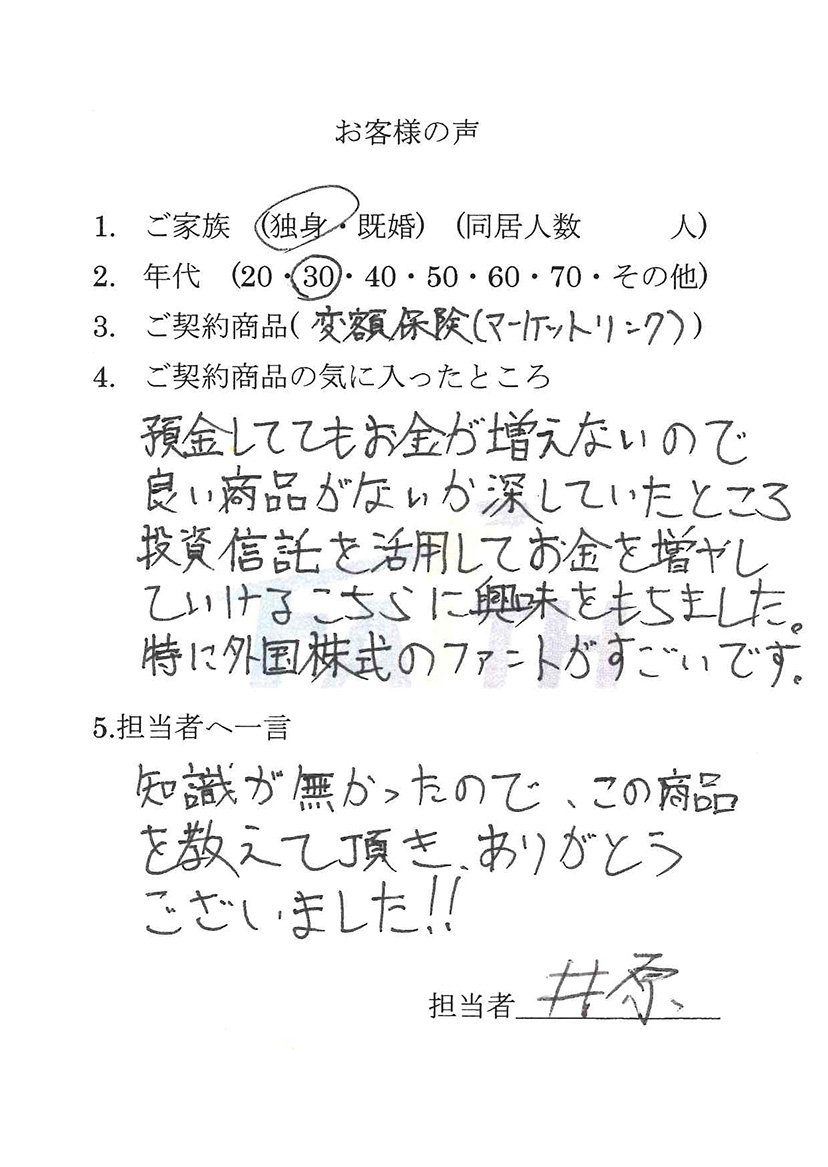 お客様の声
1. ご家族 (独身・既婚) (同居人数 人)
2. 年代 (20・30・40・50・60・70・その他)
3. ご契約商品( 変額保険(マーケットリンク))
4. ご契約商品の気に入ったところ
預金しててもお金が増えないので
良い商品がないか深していたところ
投資信託を活用してお金を増やし
ていけるこちらに興味をもちました。
特に外国株式のファントがすごいです。
5.担当者へ一言
知識が無かったので、この商品
を教えて頂き、ありがとう
ございました!!
担当者 井原